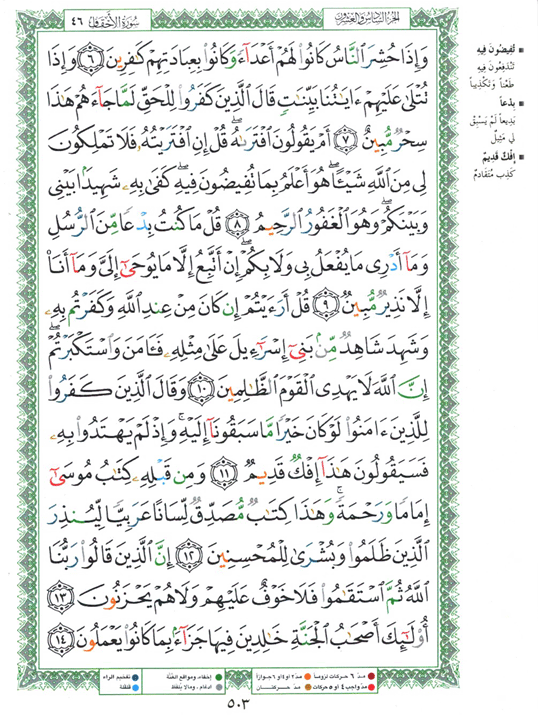 سُورَةُ الأَحْقَافِ ٤٦
الجزء السادس والعشرون
وَإِذَا حُشِرَ ٱلنَّاسُ كَانُوا۟ لَهُمْ أَعْدَآءً وَكَانُوا۟ بِعِبَادَتِهِمْ كَٰفِرِينَ ٦ وَإِذَا
تُتْلَىٰ عَلَيْهِمْ ءَايَٰتُنَا بَيِّنَٰتٍ قَالَ ٱلَّذِينَ كَفَرُوا۟ لِلْحَقِّ لَمَّا جَآءَهُمْ هَٰذَا
سِحْرٌ مُّبِينٌ ٧ أَمْ يَقُولُونَ ٱفْتَرَىٰهُ ۖ قُلْ إِنِ ٱفْتَرَيْتُهُۥ فَلَا تَمْلِكُونَ
لِى مِنَ ٱللَّهِ شَيْـًٔا ۖ هُوَ أَعْلَمُ بِمَا تُفِيضُونَ فِيهِ ۖ كَفَىٰ بِهِۦ شَهِيدًۢا بَيْنِى
وَبَيْنَكُمْ ۖ وَهُوَ ٱلْغَفُورُ ٱلرَّحِيمُ ٨ قُلْ مَا كُنتُ بِدْعًا مِّنَ ٱلرُّسُلِ
وَمَآ أَدْرِى مَا يُفْعَلُ بِى وَلَا بِكُمْ ۖ إِنْ أَتَّبِعُ إِلَّا مَا يُوحَىٰٓ إِلَىَّ وَمَآ أَنَا۠
إِلَّا نَذِيرٌ مُّبِينٌ ٩ قُلْ أَرَءَيْتُمْ إِن كَانَ مِنْ عِندِ ٱللَّهِ وَكَفَرْتُم بِهِۦ
وَشَهِدَ شَاهِدٌ مِّنۢ بَنِىٓ إِسْرَٰٓءِيلَ عَلَىٰ مِثْلِهِۦ فَـَٔامَنَ وَٱسْتَكْبَرْتُمْ ۖ
إِنَّ ٱللَّهَ لَا يَهْدِى ٱلْقَوْمَ ٱلظَّٰلِمِينَ ١٠ وَقَالَ ٱلَّذِينَ كَفَرُوا۟
لِلَّذِينَ ءَامَنُوا۟ لَوْ كَانَ خَيْرًا مَّا سَبَقُونَآ إِلَيْهِ ۚ وَإِذْ لَمْ يَهْتَدُوا۟ بِهِۦ
فَسَيَقُولُونَ هَٰذَآ إِفْكٌ قَدِيمٌ ١١ وَمِن قَبْلِهِۦ كِتَٰبُ مُوسَىٰٓ
إِمَامًا وَرَحْمَةً ۚ وَهَٰذَا كِتَٰبٌ مُّصَدِّقٌ لِّسَانًا عَرَبِيًّا لِّيُنذِرَ
ٱلَّذِينَ ظَلَمُوا۟ وَبُشْرَىٰ لِلْمُحْسِنِينَ ١٢ إِنَّ ٱلَّذِينَ قَالُوا۟ رَبُّنَا
ٱللَّهُ ثُمَّ ٱسْتَقَٰمُوا۟ فَلَا خَوْفٌ عَلَيْهِمْ وَلَا هُمْ يَحْزَنُونَ ١٣
أُو۟لَٰٓئِكَ أَصْحَٰبُ ٱلْجَنَّةِ خَٰلِدِينَ فِيهَا جَزَآءًۢ بِمَا كَانُوا۟ يَعْمَلُونَ ١٤
تُفِيضُونَ فِيهِ
تَنْدَفِعُونَ فِيهِ
طَعْنًا وَتَكْذِيبًا
بِدْعًا
بَدِيعًا لَمْ يَسْبِقْ
لِي مَثِيلٌ
إِفْكٌ قَدِيمٌ
كَذِبٌ مُتَقَادِمٌ
مدّ ٦ حركات لزوماً
مدّ ٢ أو ٤ أو ٦ جوازاً
مدّ واجب ٤ أو ٥ حركات
مدّ حركتان
إخفاء، ومواقع الغنّة
إدغام، ومالا يلفظ
تفخيم الراء
قلقلة
٥٠٣